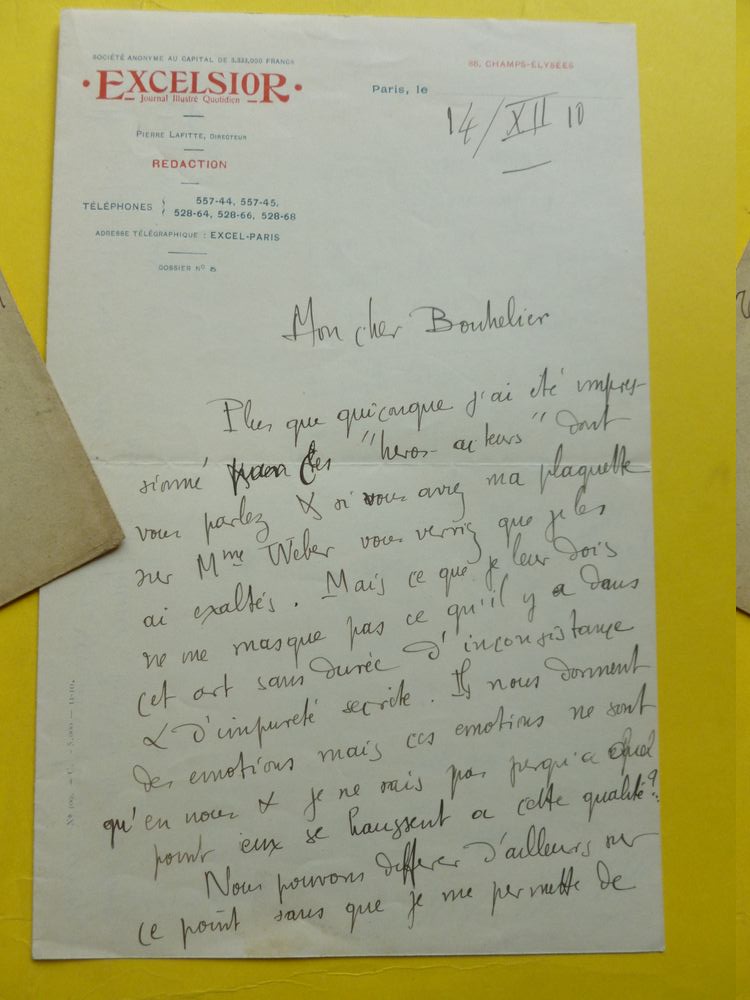 SOCIÉTÉ ANONYME AU CAPITAL DE 3.333,000 FRANCS
• EXCELSIOR •
Journal Illustré Quotidien
PIERRE LAFITTE, DIRECTEUR
REDACTION
TÉLÉPHONES 557-44, 557-45,
528-64, 528-66, 528-68
ADRESSE TÉLÉGRAPHIQUE : EXCEL-PARIS
DOSSIER Nº
88, CHAMPS-ÉLYSÉES
Paris, le
14/XII 10
Mon cher Bouhelier
Plus que quiconque j'ai été impres-
sionné les "héros-acteurs" dont
vous parlez & si vous avez ma plaquette
sur Mme Weber vous verriez que je les
ai exaltés. Mais ce que je leur dois
ne me masque pas ce qu'il y a dans
cet art sans durée d'inconsistance
& d'impureté secrète. Ils nous donnent
des emotions mais ces emotions ne sont
qu'en nous & je ne sais pas jusqu'a quel
point eux se haussent a cette qualité?
Nous pouvons differer d'ailleurs sur
ce point sans que je me permette de